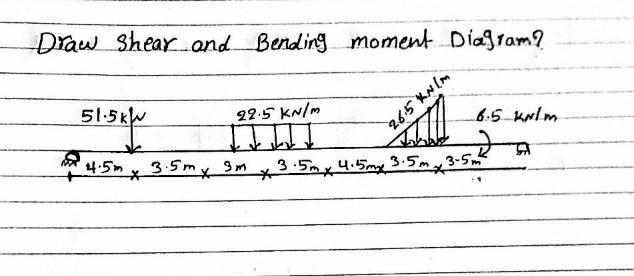 Draw Shear and Bending moment Diagram?
51.5kN 22.5 KN/m 26.5 KN/m 6.5 KN/m
4.5m x 3.5m x 3m x 3.5m x 4.5m x 3.5m x 3.5m